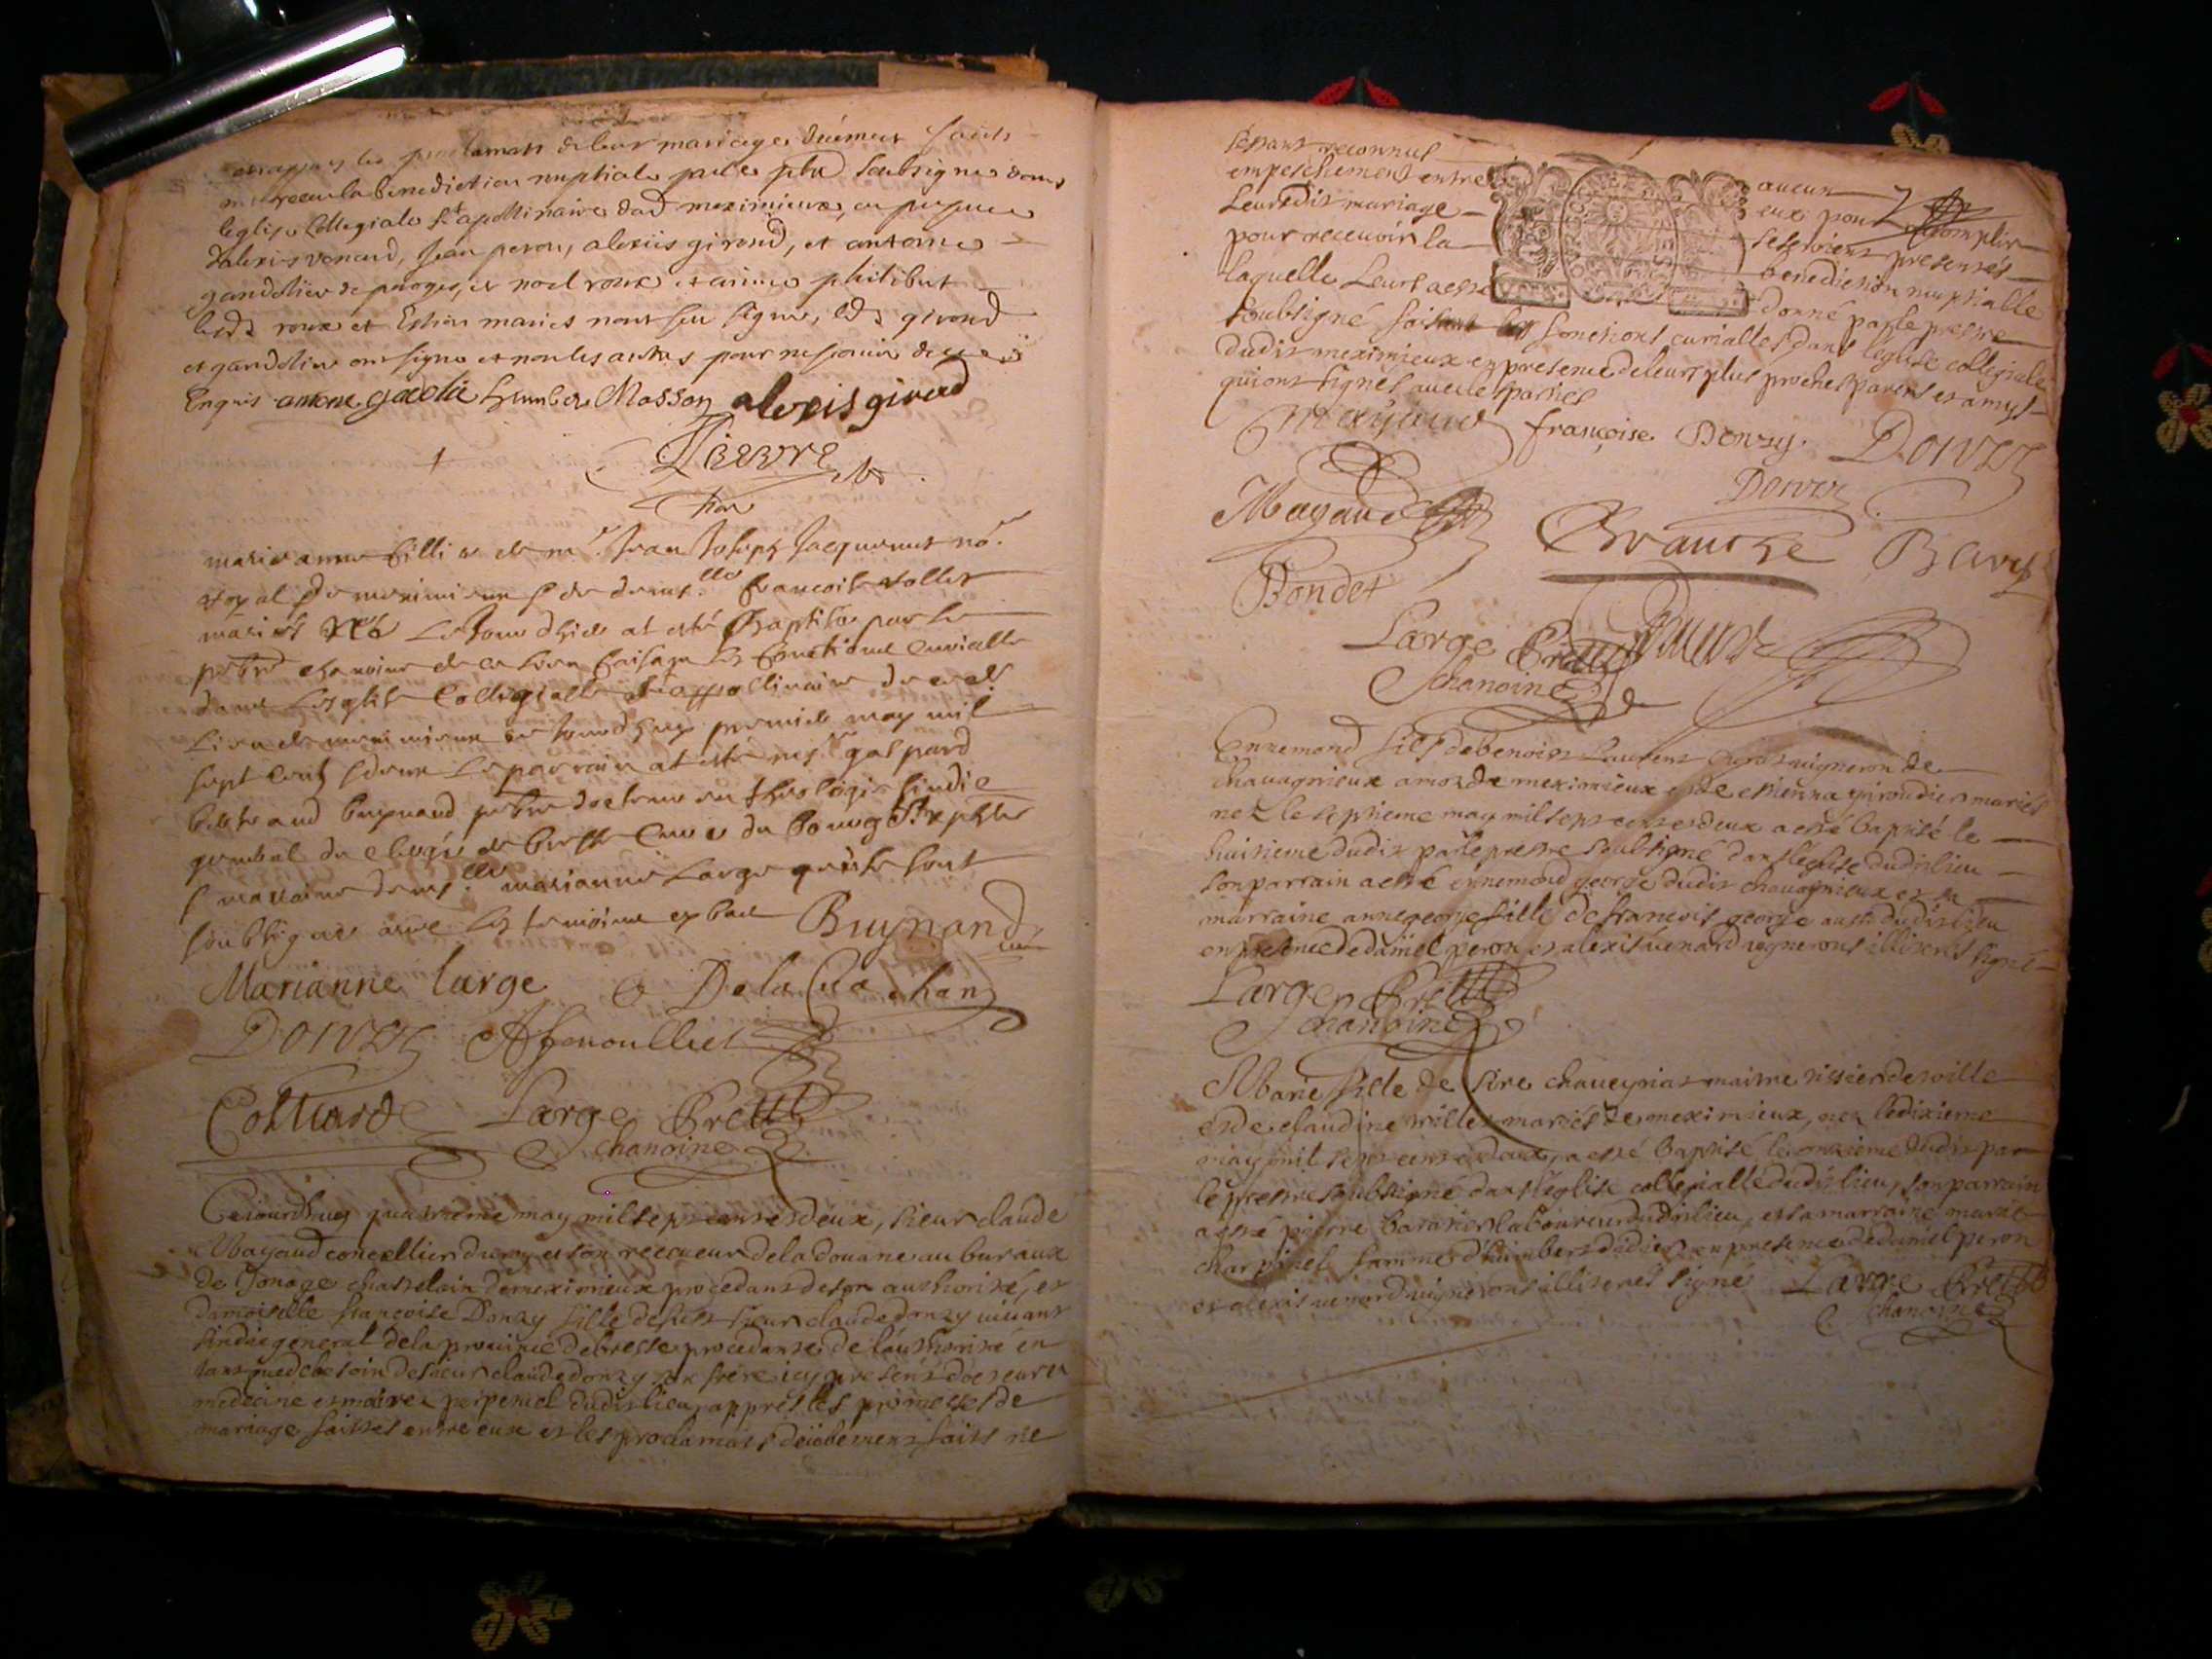 proclamats de leur mariage deüment faits
receu la benediction nuptiale par le pbre soubsigné dans
leglise Collegiale St apollinaire dud meximieux, en presence
dalexis venard, Jean peron, alexis giroud, et antoine
gandolier de peroges, et noel roux et aimé philibert
lesd roux et mariés nont sceu signer, led giroud
et gandolier ont signé et non les autres pour ne scavoir de ce
Enquis antoine humber Masson alexis giroud
Lievre
marie anne fillie de mr Jean Joseph Jacquemet no.re
royal de meximieux & de demlle francoise
mariés née le Jour dhier at esté Baptisée par le
pbre chanoine de ce lieu faisant les fonctions Curialles
dans Leglise Collegialle St appollinaire du dt
Lieu de meximieux ce Jourdhuy premier may mil
sept cents deux Le parrain at esté mesre gaspard
bertrand buynand pbre docteur en theologie sindic
general du clergé de bresse Curé du bourg St xpstre
& marraine demlle marianne Large qui se sont
soubsignés avec les temoins Buynand curé
Marianne large De la Cua chan
Donzy A fenoulliet
Cottiard Large Pretre
chanoine
Cejourdhuy quatrieme may mil sept cents et deux, sieur claude
Mayaud concellier du roy et son receveur de la douane au buraux
de Jonage chastelain de meximieux procedant de son authorité, et
damoiselle françoise Donzy fille de feu sieur claude donzy vivant
sindic general de la province de bresse procedante de lauthorité en
tant que de besoin de sieur claude donzy son frere icy present docteur en
medecine et maire perpetuel dudit lieu, appres les promesses de
mariage faittes entre eux et les proclamats deüement faits ne
sestant reconnus aucun
empeschement entre eux pour accomplir
leurdit mariage se seroient presentés
pour recevoir la benediction nuptialle
laquelle leur a esté donné par le prestre
soubsigné faisant les fonctions curialles dans léglise collegialle
dudit meximieux en presence de leurs plus proches parents et amys
qui ont signés avec les parties
Mayaud françoise Donzy. Donzy
Mayaud Donzy
Brausse Bary
Bondet
Large Pretre
chanoine
Ennemond fils de benoist Laurent Gros vigneron de
chavagnieux amoz de meximieux et de estienna giroudier mariés
nez le septieme may mil sept cents et deux a esté baptisé le
huitieme dudit par le prestre soubsigné dans léglise dudit lieu
son parrain a esté ennemond george dudit chavagnieux et sa
marraine anne george fille de francois george aussi dudit lieu
en presence de daniel peron et alexis venard vignerons illiterés signé
Large Pretre
chanoine
Marie fille de sire chaveyriat maitre tissier de toille
et de claudine mariés de meximieux, nez le dixieme
may mil sept cents et deux, a esté baptisé le onzieme dudit par
le prestre soubsigné dans léglise collegialle dudit lieu, son parrain
a esté pierre baratier laboureur dudit lieu, et sa marraine marie
charpinel famme d'humbert didier en presence de daniel peron
et alexis venard vignerons illiterés signé Large Pretre
chanoine